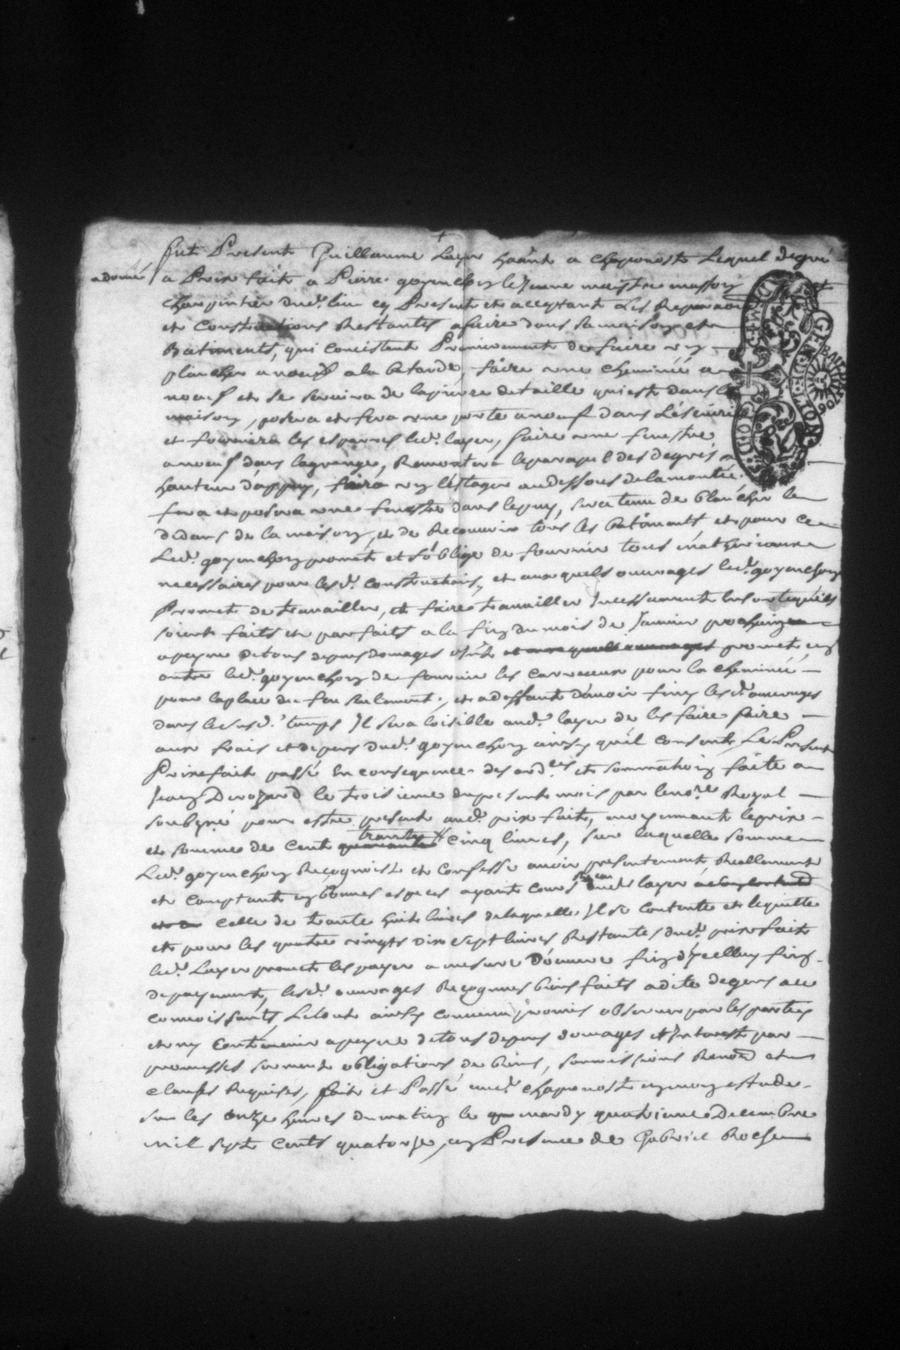 fut Present Guillaume Layr habitant a Chaponost Lequel de gré
a donné a Prix fait a Pierre goyenchoy le Jeune maistre masson et
charpentier dud. lieu cy Present et acceptant Les Reparaons
et Constructions Restantes afaire dans sa maison et
Batiments, qui concistent Premierement de faire un
plancher a neuf a la , faire une cheminée a
neuf et se servira de la pierre de taille qui est dans la
maison, posera et fera une porte a neuf dans L'escurie
et fournira les esparres led. layer, faire une fenestre
a neuf dans la grange, Remontera le parapel des degrés a
hauteur dappuy, faire un l'estage au dessous de la montée
fera et posera une fenestre dans le , sera tenu de blanchir le
dedans de la maison, et de Recouvrir tous les Batiments et pour ce
Led. goyenchoy promet et s'oblige de fournir tous materiaux
necessaires pour lesd. constructions, et auxquels ouvrages led. goyenchoy
Promet de travailler, et faire travailler Incessamment en sorte quils
soient faits et parfaits a la fin du mois de Janvier prochain
a peyne de tous depens domages et auxquels ouvrages promet en
outre led. goyenchoy de fournir les carreaux pour la cheminée
pour la place du feu seulement, et a deffaut d'avoir finy lesd. ouvrages
dans le susd. temps Il sera loisible aud. layer de les faire faire
aux frais et depens dud. goyenchoy ainsy qu'il consent, Le Present
Prixfait passé en consequence des ord.es et sommation faite a
Jean le troisieme du present mois par le no.re Royal
soubsigné pour estre present aud. prix fait, moyennant le prix
et somme de cent quarante trante cinq livres, sur laquelle somme
Led. goyenchoy Recognoist et confesse avoir presentement Reellement
et comptant en bonnes especes ayants cours dud. layer
celle de trante huit livres de laquelle Il se contente et le quitte
et pour les quatre vingts dix sept livres Restantes dud. prixfait
led. Layer promet les payer a mesure d'oeuvre fin d'ycelluy fin
de payement, lesd. ouvrages Recognus bien faits a dite de gens a ce
connoissants, Le tout ainsy convenu promis observer par les parties
et ny contrevenir a peyne de tous depens domages et Interests par
promesses serments obligations de biens, soumissions Renon. et
clauses Requises, fait et Passé aud. Chaponost en mon estude
sur les onze heures du matin le mardy quatrieme Decembre
mil sept cents quatorze, en Presence de Gabriel Roche